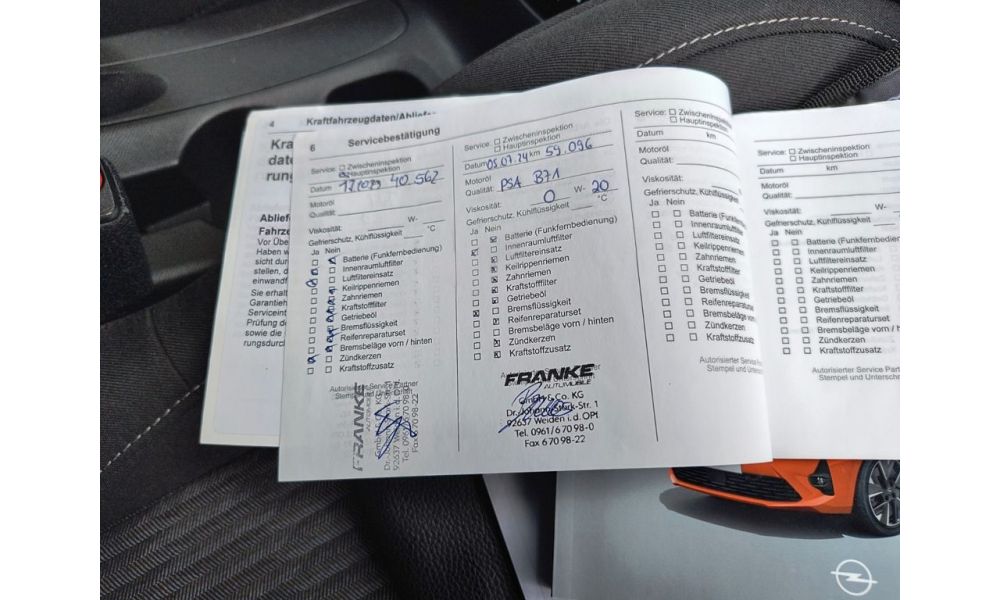 4 Kraftfahrzeugdaten/Abliefe
Kra
date
rung
Abliefe
Fahrze
Vor Übe
Haben w
sicht dur
stellen, d
einwandf
Sie erhal
Garantieh
Serviceint
Prüfung d
sowie die
rungsdurch
6 Servicebestätigung
Service: Zwischeninspektion
Hauptinspektion
Datum 40.562
Motoröl
Qualität:
Viskosität: W-
Gefrierschutz, Kühlflüssigkeit °C
Ja Nein
Batterie (Funkfernbedienung)
Innenraumluftfilter
Luftfiltereinsatz
Keilrippenriemen
Zahnriemen
Kraftstofffilter
Getriebeöl
Bremsflüssigkeit
Reifenreparaturset
Bremsbeläge vorn / hinten
Zündkerzen
Kraftstoffzusatz
Autorisierter Service Partner
Stempel und Unterschrift
FRANKE
AUTOMOBILE
GmbH & Co. KG
92637 Weiden i. d. OPf
Tel. 0961/6 70 98-0
Fax 6 70 98-22
Service: Zwischeninspektion
Hauptinspektion
Datum 05.07.24 km 59.096
Motoröl
Qualität: PSA B71
Viskosität: 0 W- 20
Gefrierschutz, Kühlflüssigkeit °C
Ja Nein
Batterie (Funkfernbedienung)
Innenraumluftfilter
Luftfiltereinsatz
Keilrippenriemen
Zahnriemen
Kraftstofffilter
Getriebeöl
Bremsflüssigkeit
Reifenreparaturset
Bremsbeläge vorn / hinten
Zündkerzen
Kraftstoffzusatz
FRANKE
AUTOMOBILE
GmbH & Co. KG
92637 Weiden i. d. OPf
Tel. 0961/6 70 98-0
Fax 6 70 98-22
Service: Zwischeninspektion
Hauptinspektion
Datum km
Motoröl
Qualität:
Viskosität: W-
Gefrierschutz, Kühlflüssigkeit
Ja Nein
Batterie (Funkf
Innenraumluftf
Luftfiltereinsatz
Keilrippenrieme
Zahnriemen
Kraftstofffilter
Getriebeöl
Bremsflüssigk
Reifenreparatu
Bremsbeläge v
Zündkerzen
Kraftstoffzusat
Autorisierter Service Pa
Stempel und Unters
Service: Zwischeninspektion
Hauptinspektion
Datum km
Motoröl
Qualität:
Viskosität: W-
Gefrierschutz, Kühlflüssigkeit
Ja Nein
Batterie (Funkfernbedienu
Innenraumluftfilter
Luftfiltereinsatz
Keilrippenriemen
Zahnriemen
Kraftstofffilter
Getriebeöl
Bremsflüssigkeit
Reifenreparaturset
Bremsbeläge vorn /
Zündkerzen
Kraftstoffzusatz
Autorisierter Service Part
Stempel und Unterschri